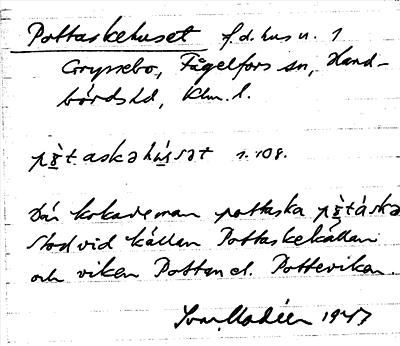 Pottaskehuset f.d. hus u. 1
Gryssebo, Fågelfors sn, Hand-
börds hd, Klm. l.
pò̱t askəhú̱sət s. 108.
Där kokade man pottaska pò̱táskə
Stod vid källan Pottaskekällan
och viken Potten el. Potteviken.
Ivar Modéer 1947